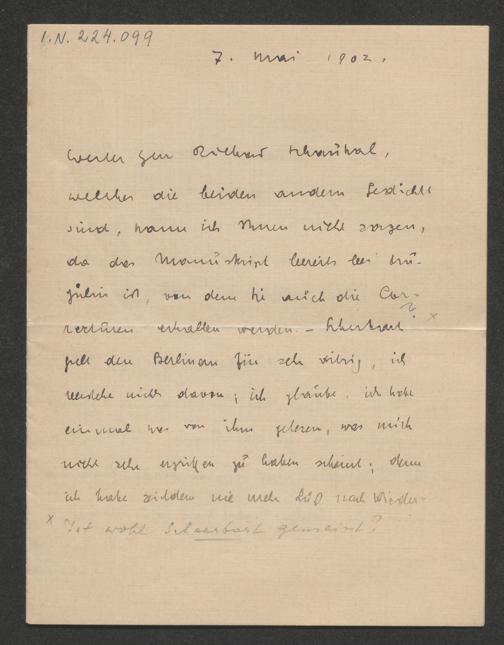 I.N. 224.099
7. Mai 1902.
Werter Herr Richard Schaukal,
welches die beiden andern Gedichte
sind, kann ich Ihnen nicht sagen,
da das Manuskript bereits bei Dru-
gulin ist, von dem Sie auch die Cor-
recturen erhalten werden. – Scherbart ? x
gilt den Berlinern für sehr witzig, ich
verstehe nichts davon; ich glaube, ich habe
einmal was von ihm gelesen, was mich
nicht sehr ergötzt zu haben scheint; denn
ich habe seitdem nie mehr Lust nach Wieder-
x Ist wohl Scheerbart gemeint?